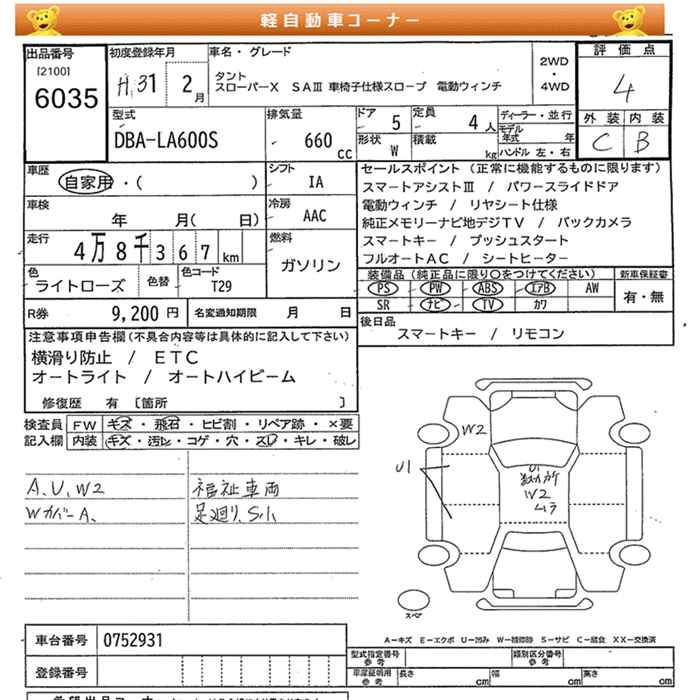 軽自動車コーナー
出品番号
[2100]
6035
初度登録年月
H.31 2月
車名・グレード
タント
スローパーX SAⅢ 車椅子仕様スロープ 電動ウィンチ
2WD
・
4WD
評価点
4
外装 内装
C B
型式
DBA-LA600S
排気量
660 cc
ドア 5
定員 4人
形状 W
積載 kg
ディーラー・並行
モデル年式 年
ハンドル 左・右
車歴
自家用・( )
シフト
IA
車検
年 月( 日)
冷房
AAC
走行
4万8千367km
燃料
ガソリン
色
ライトローズ
色替
色コード
T29
R券 9,200円 名変通知期限 月 日
セールスポイント (正常に機能するものに限ります)
スマートアシストⅢ / パワースライドドア
電動ウィンチ / リヤシート仕様
純正メモリーナビ地デジTV / バックカメラ
スマートキー / プッシュスタート
フルオートAC / シートヒーター
装備品(純正品に限り○をつけてください) 新車保証書
PS PW ABS エアB AW 有・無
SR ナビ TV カワ
後日品
スマートキー / リモコン
注意事項申告欄(不具合内容等は具体的に記入して下さい)
横滑り防止 / ETC
オートライト / オートハイビーム
修復歴 有 〔箇所 〕
検査員 FW キズ・飛石・ヒビ割・リペア跡・×要
記入欄 内装 キズ・汚レ・コゲ・穴・スレ・キレ・破レ
A、U、W2
WカバーA、
福祉車両
足廻り、S小
W2
U1
U1
数カ所
W2
ムラ
スペア
A-キズ E-エクボ U-凹み W-補修跡 S-サビ C-腐食 XX-交換済
車台番号 0752931
登録番号
型式指定番号 参考
類別区分番号 参考
車庫証明用 参考
長さ cm 幅 cm 高さ cm